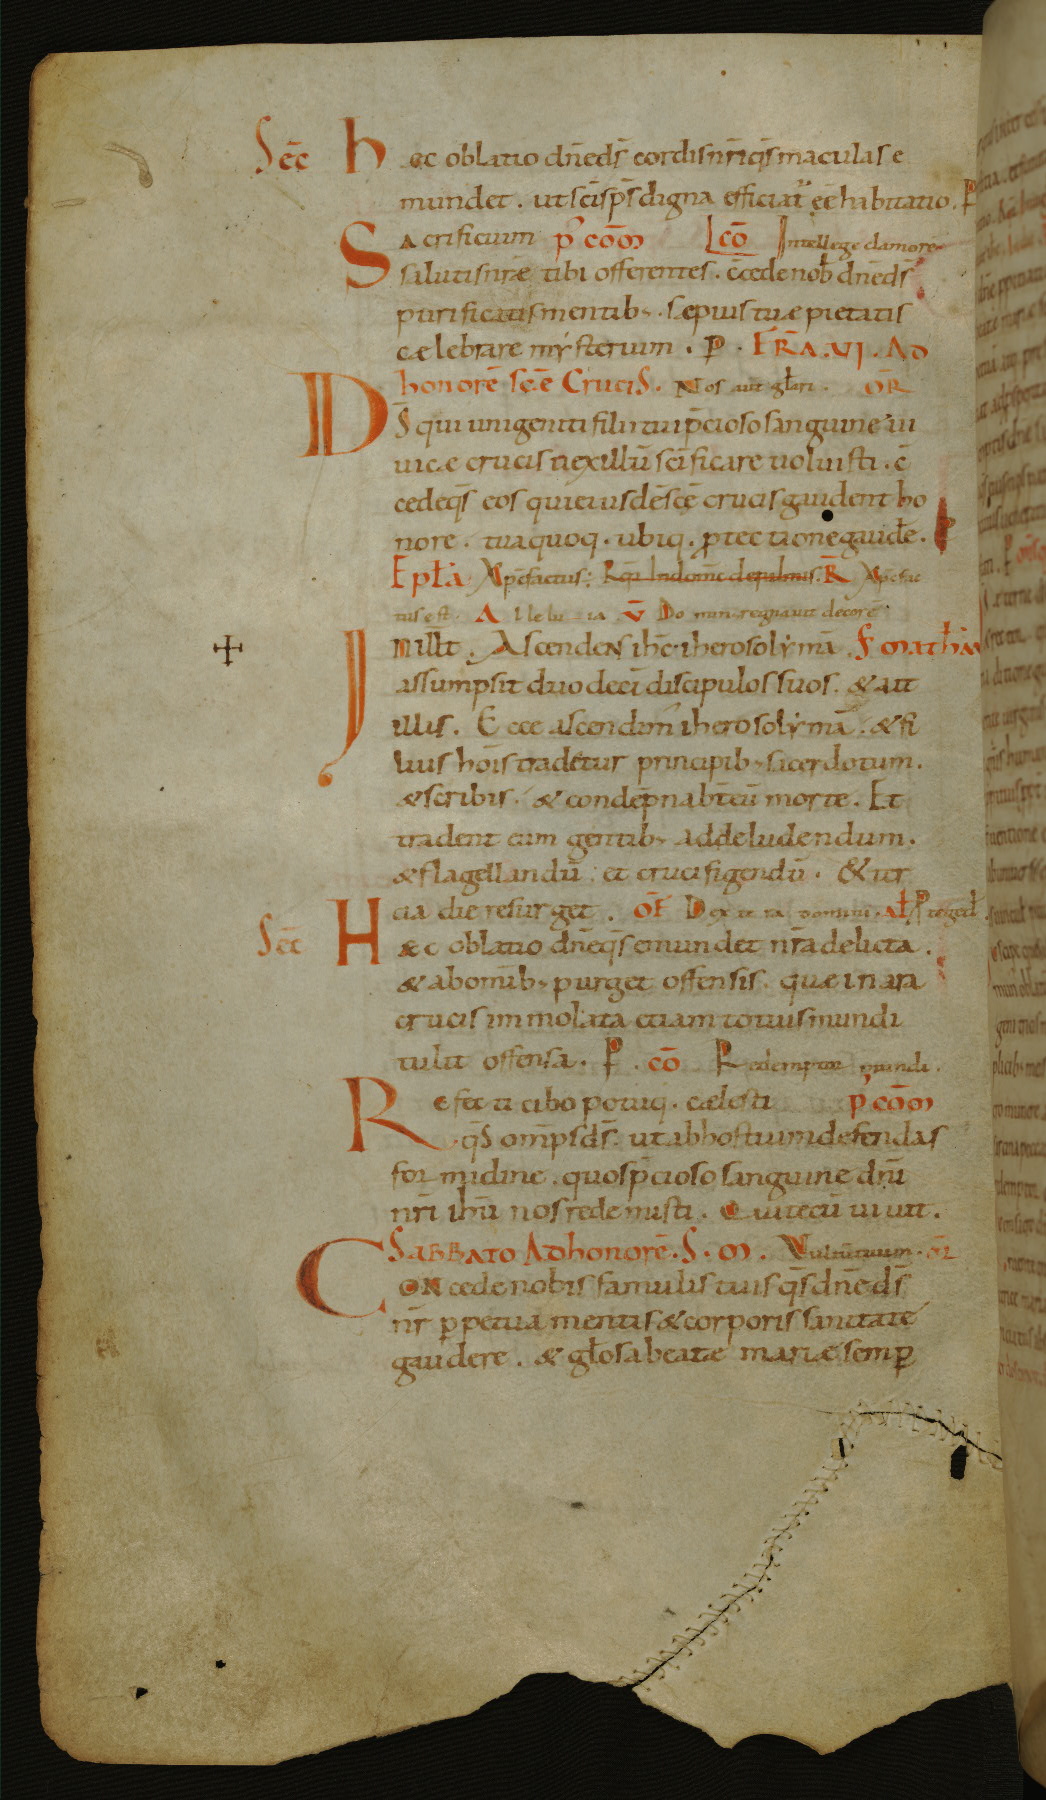 Sec̄ hec oblatio dn̄eds̄ cordisnr̄iqs̄maculas e
mundet . ut sc̄isp̄s digna efficiat᷑ ee̅ habitatio . P̄
Sacrificium p᷒ co̅m Co̅ Intellege clamore̅
salutisnrǣ tibi offerentes . c̄cede nob̄ dn̄eds̄
purificatis mentib; . sæpius tuæ pietatis
cælebrare mysterium . P̄ . FR̄A . VI . AD
honore̅ sc̄e̅ CruciS . Nos aut̄ gl̄ori . OR̄
Ds̄ qui unigeniti filii tui p̄cioso sanguine ui
uicæ crucis uexillu̅ sc̄ificare uoluisti . c̄
cedeqs̄ eos qui eiusde̅ sc̄e̅ crucis gaudent ho
nore . tuaquoq . ubiq . ꝓtectione gaude̅ .
Ep̄la Xp̄efactus : Req̄ In domīc depalmis . R̄ Xp̄efac
tus est . A lle lu ia V̄ Do minus regnauit decore̅
In ill̄t . AscendeN ih̄c iherosolyma̅ . S̄ math̄m
assumpsit duodeci̅ discipulos suos . & ait
illis . Ecce ascendim᷒ iherosolyma̅ . & fi
lius ho̅is tradetur principib; sacerdotum .
& scribis . & conde̅pnabt̄ eu̅ morte . Et
tradent eum gentib; ad deludendum .
& flagellandu̅ . et crucifigendu̅ . & ter
cia die resurget . OF̄ Dextera domini . al̄ Proteged̄
Sec̄ Hæc oblatio dn̄eqs̄ emundet nr̄a delicta .
& abom̅ib; purget offensis . quæ in ara
crucis immolata etiam totius mundi
tulit offensa . P̄ . co̅ Redemptor mundi .
Refecti cibo potuiq . cælesti p᷒ co̅m
qs̄ om̅ps ds̄ . ut ab hostium defendas
formidine . quos p̄cioso sanguine dn̄i
nr̄i ih̄u nos redemisti . Qui tecu̅ uiuit .
SABBATO AD honore̅ . S . M . Vultu̅tuum . OR̄
CONcede nobis famulis tuis qs̄ dn̄e ds̄
nr̄ ꝑpetua mentis & corporis sanitate
gaudere . & gl̄osa beatæ mariæ semꝑ